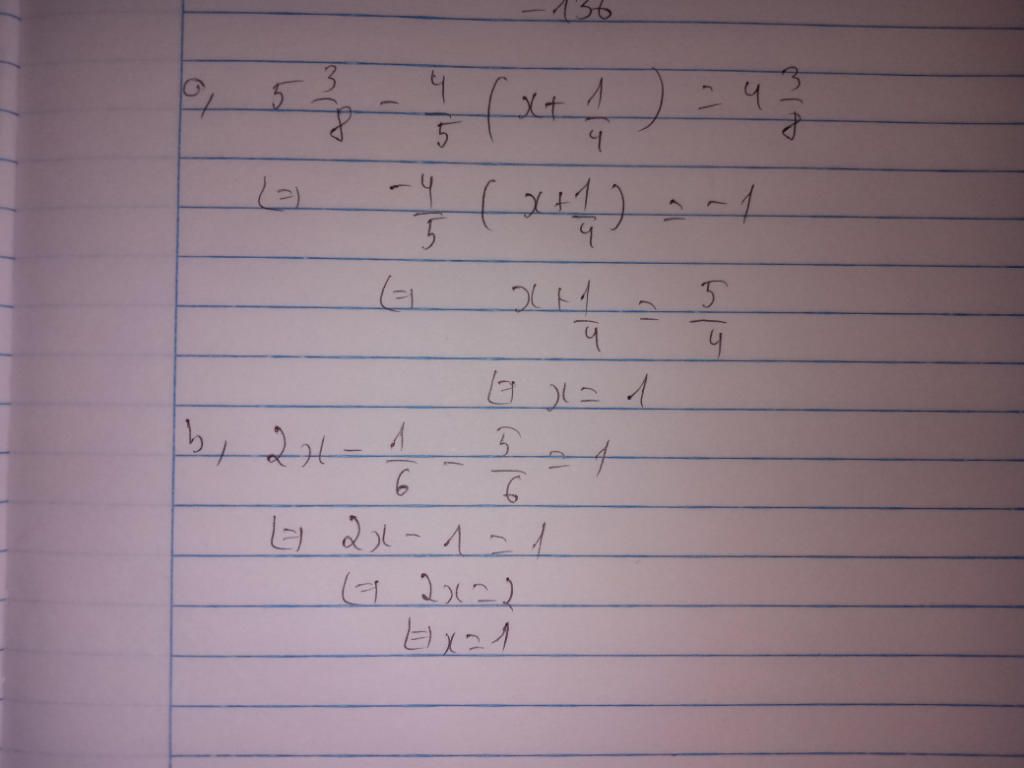 -136
a, 5 3/8 - 4/5 (x + 1/4) = 4 3/8
(=) -4/5 (x + 1/4) = -1
(=) x + 1/4 = 5/4
(=) x = 1
b, 2x - 1/6 - 5/6 = 1
(=) 2x - 1 = 1
(=) 2x = 2
(=) x = 1